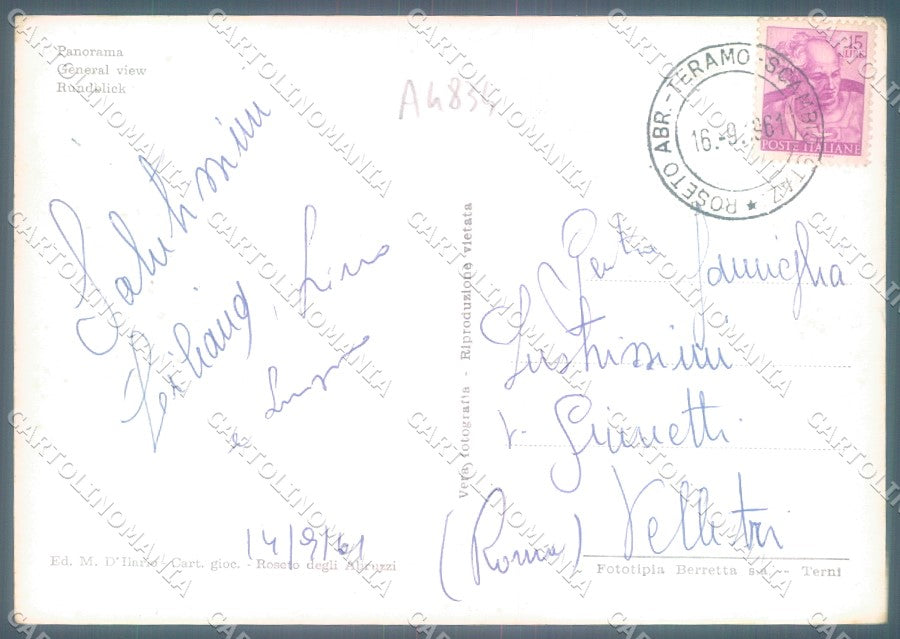 Panorama
General view
Rundblick
A4834
15
LIRE
POSTE ITALIANE
ROSETO ABR. - TERAMO - SCAMBIO
16.-9.1961
Salutissimi
Lino
e
14/9/61
Ed. M. D'Ilario - Cart. gioc. - Roseto degli Abruzzi
Vera fotografia - Riproduzione vietata
Famiglia
v. Giannetti
Velletri
(Roma)
Fototipia Berretta s.a. -- Terni
CARTOLINOMANIA